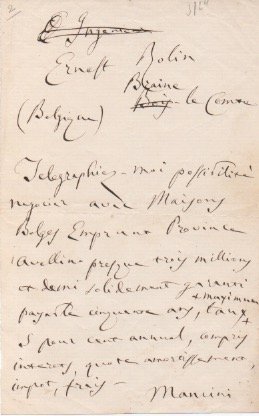 Ernest Bolin
Braine
le Comte
(Belgique)
Télégraphiez-moi possibilité
négocier avec Maisons
Belges Emprunt Province
Avellino presque trois millions
et demi solidement garanti
payable cinquante ans, taux
maximum
5 pour cent annuel, compris
intérêts, quote amortissement,
impôt, frais -
Mancini